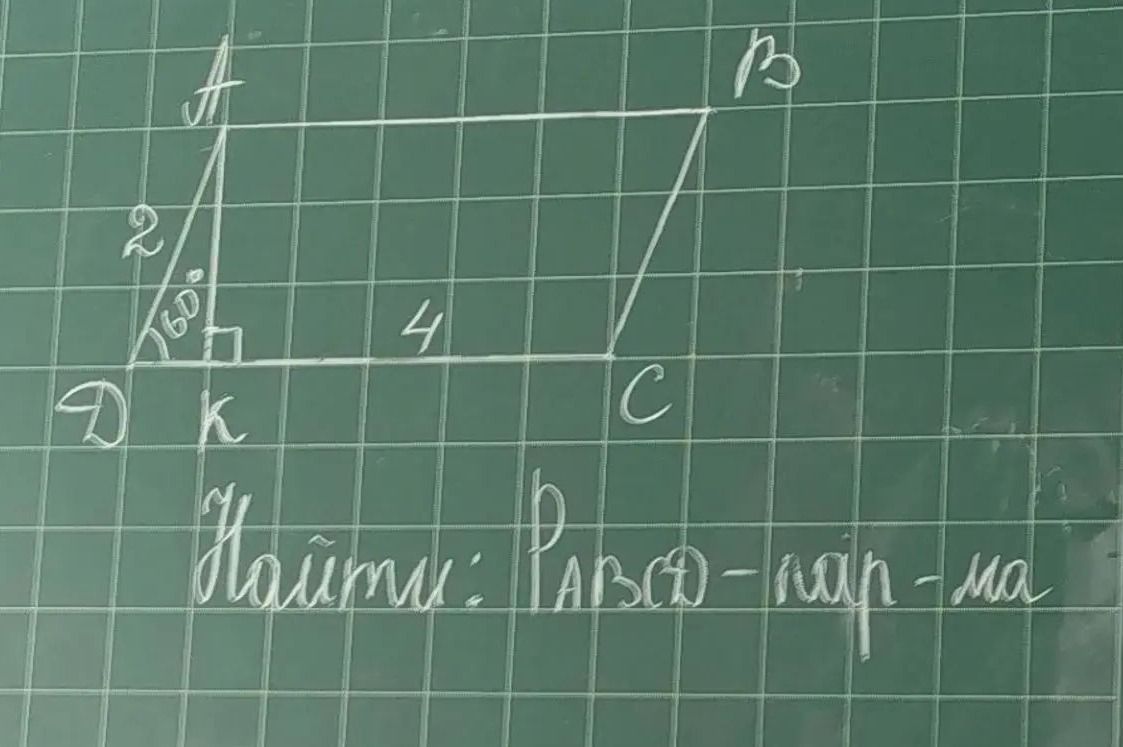 A B
2
60°
4
D K C
Найти: PABCD - пар - ма